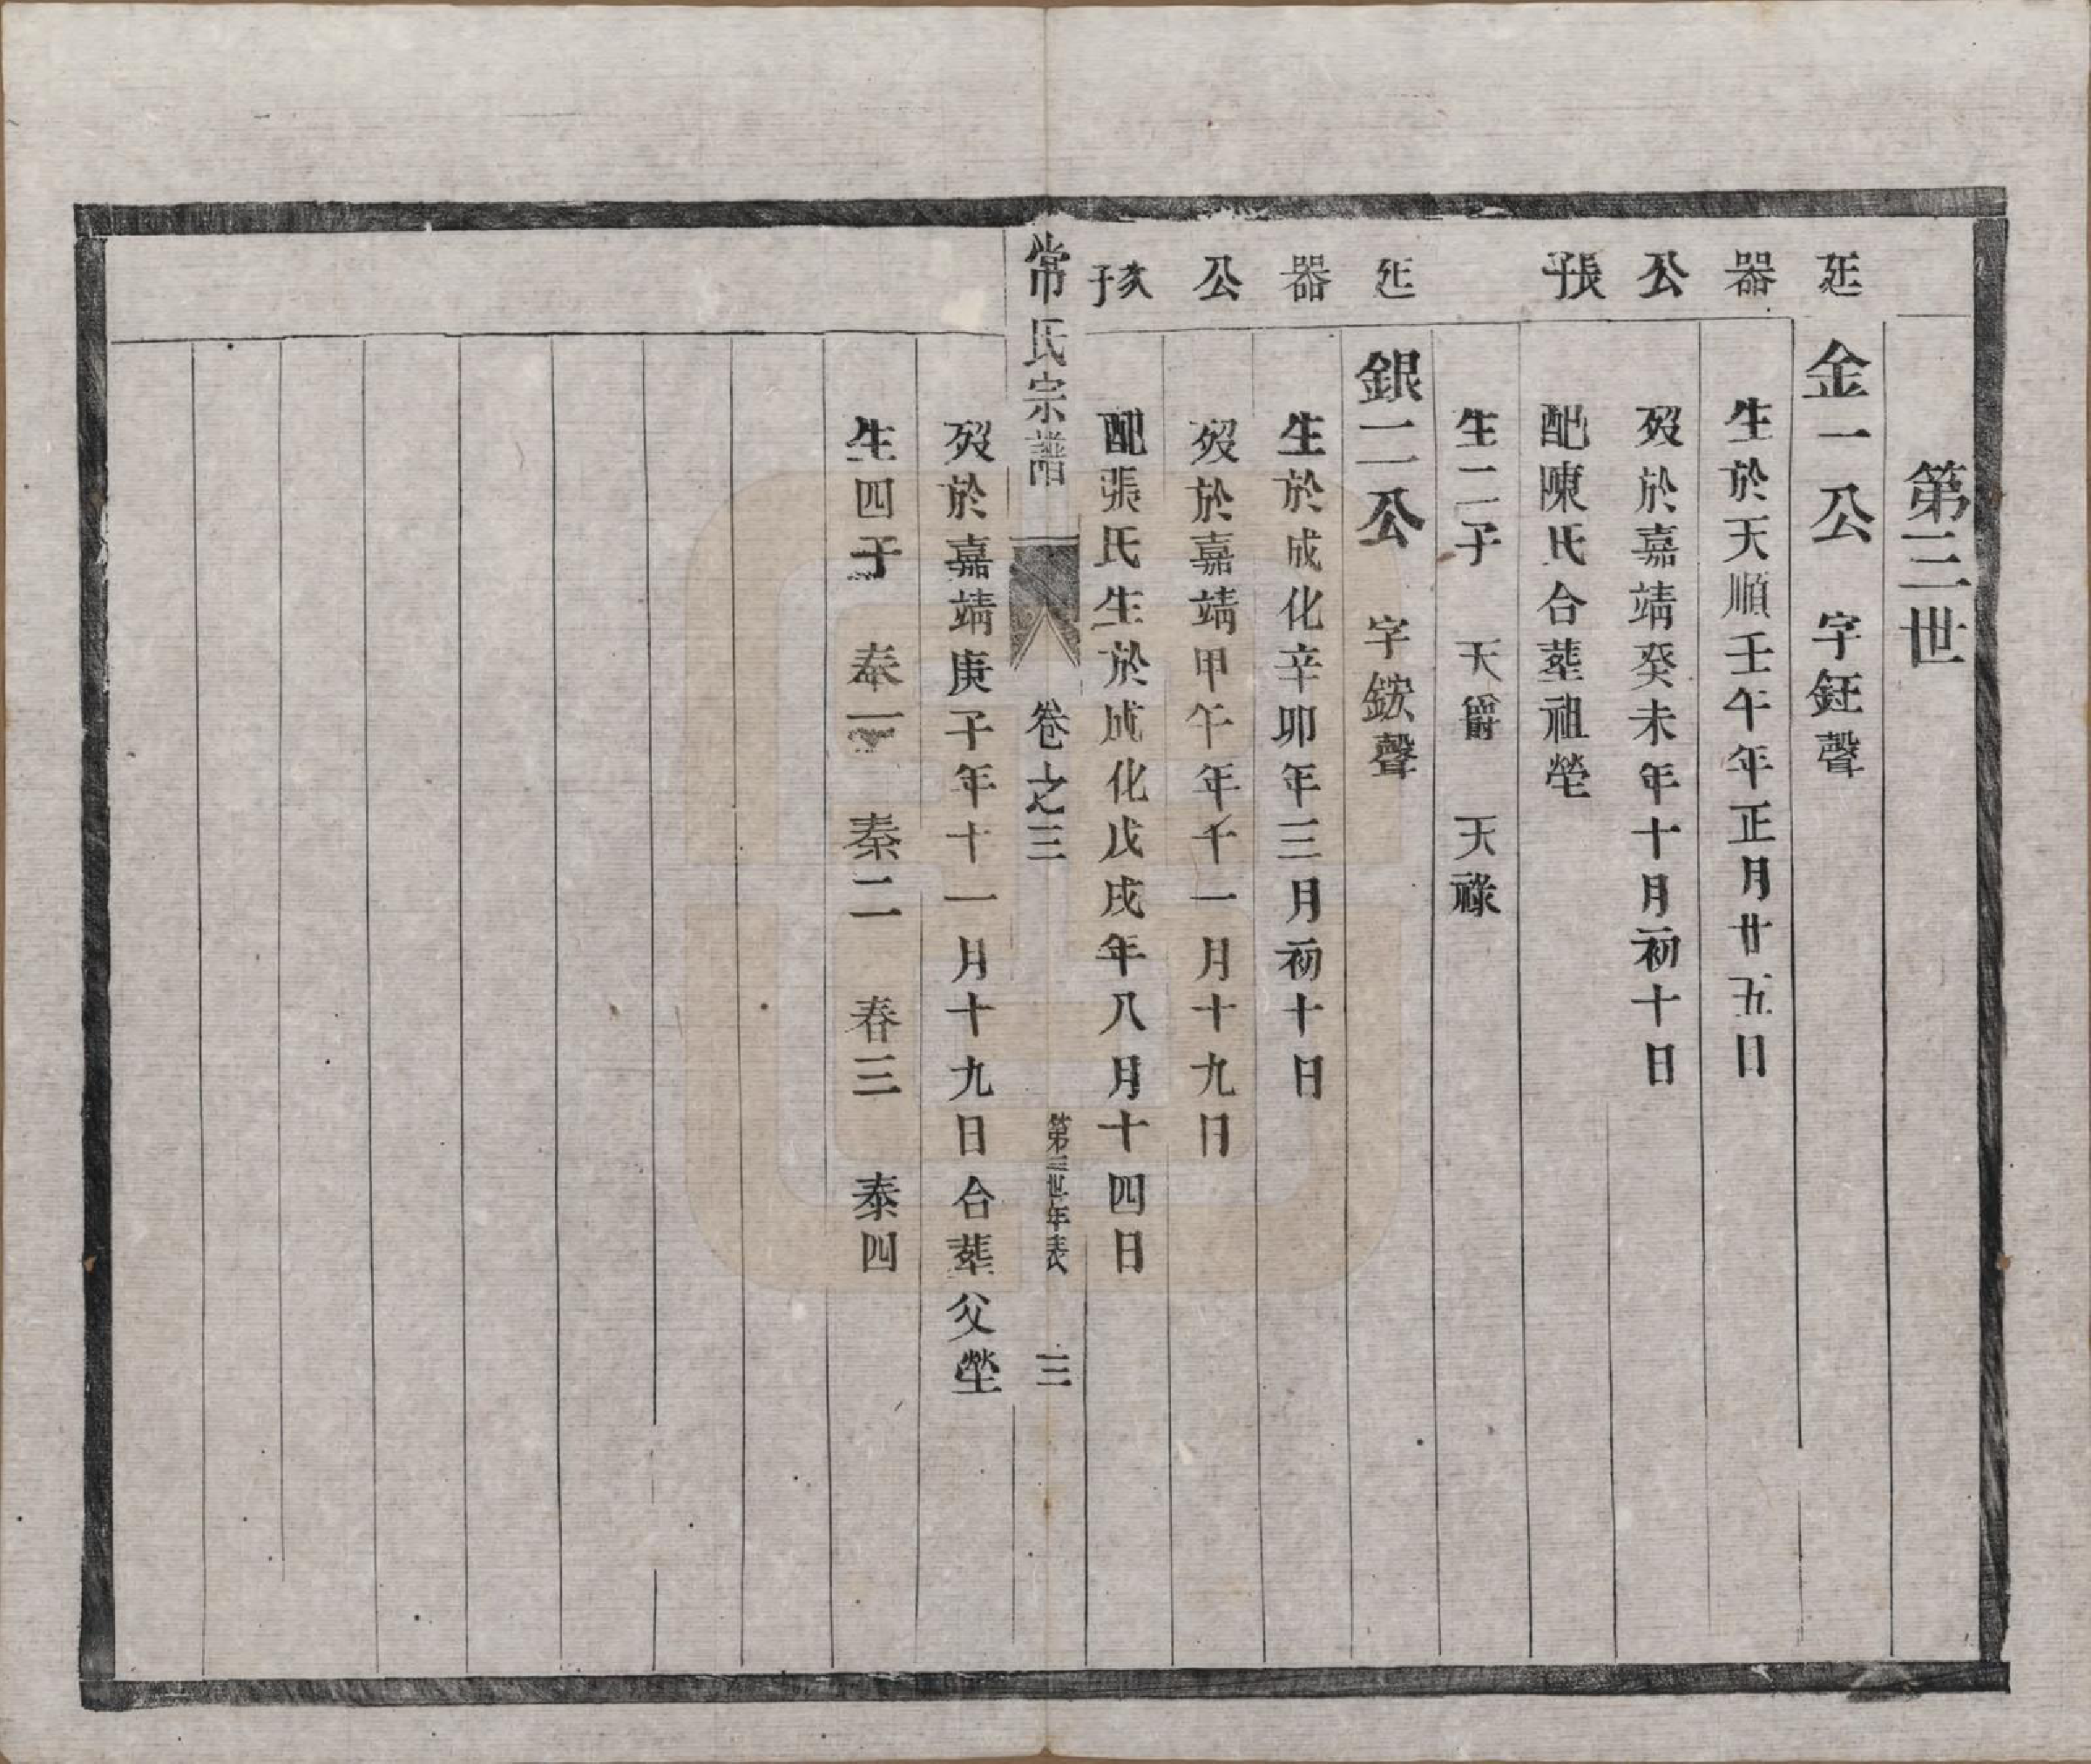 第三世
廷器公張子
金一公　字鉦聲
生於天順壬午年正月廿五日
歿於嘉靖癸未年十月初十日
配陳氏合塟祖塋
生二子　天爵　天祿
廷器公次子
銀二公　字鋐聲
生於成化辛卯年三月初十日
歿於嘉靖甲午年十一月十九日
配張氏生於成化戊戌年八月十四日
常氏宗譜　卷之三　第三世年表　三
歿於嘉靖庚子年十一月十九日合塟父塋
生四子　奉一　秦二　春三　泰四